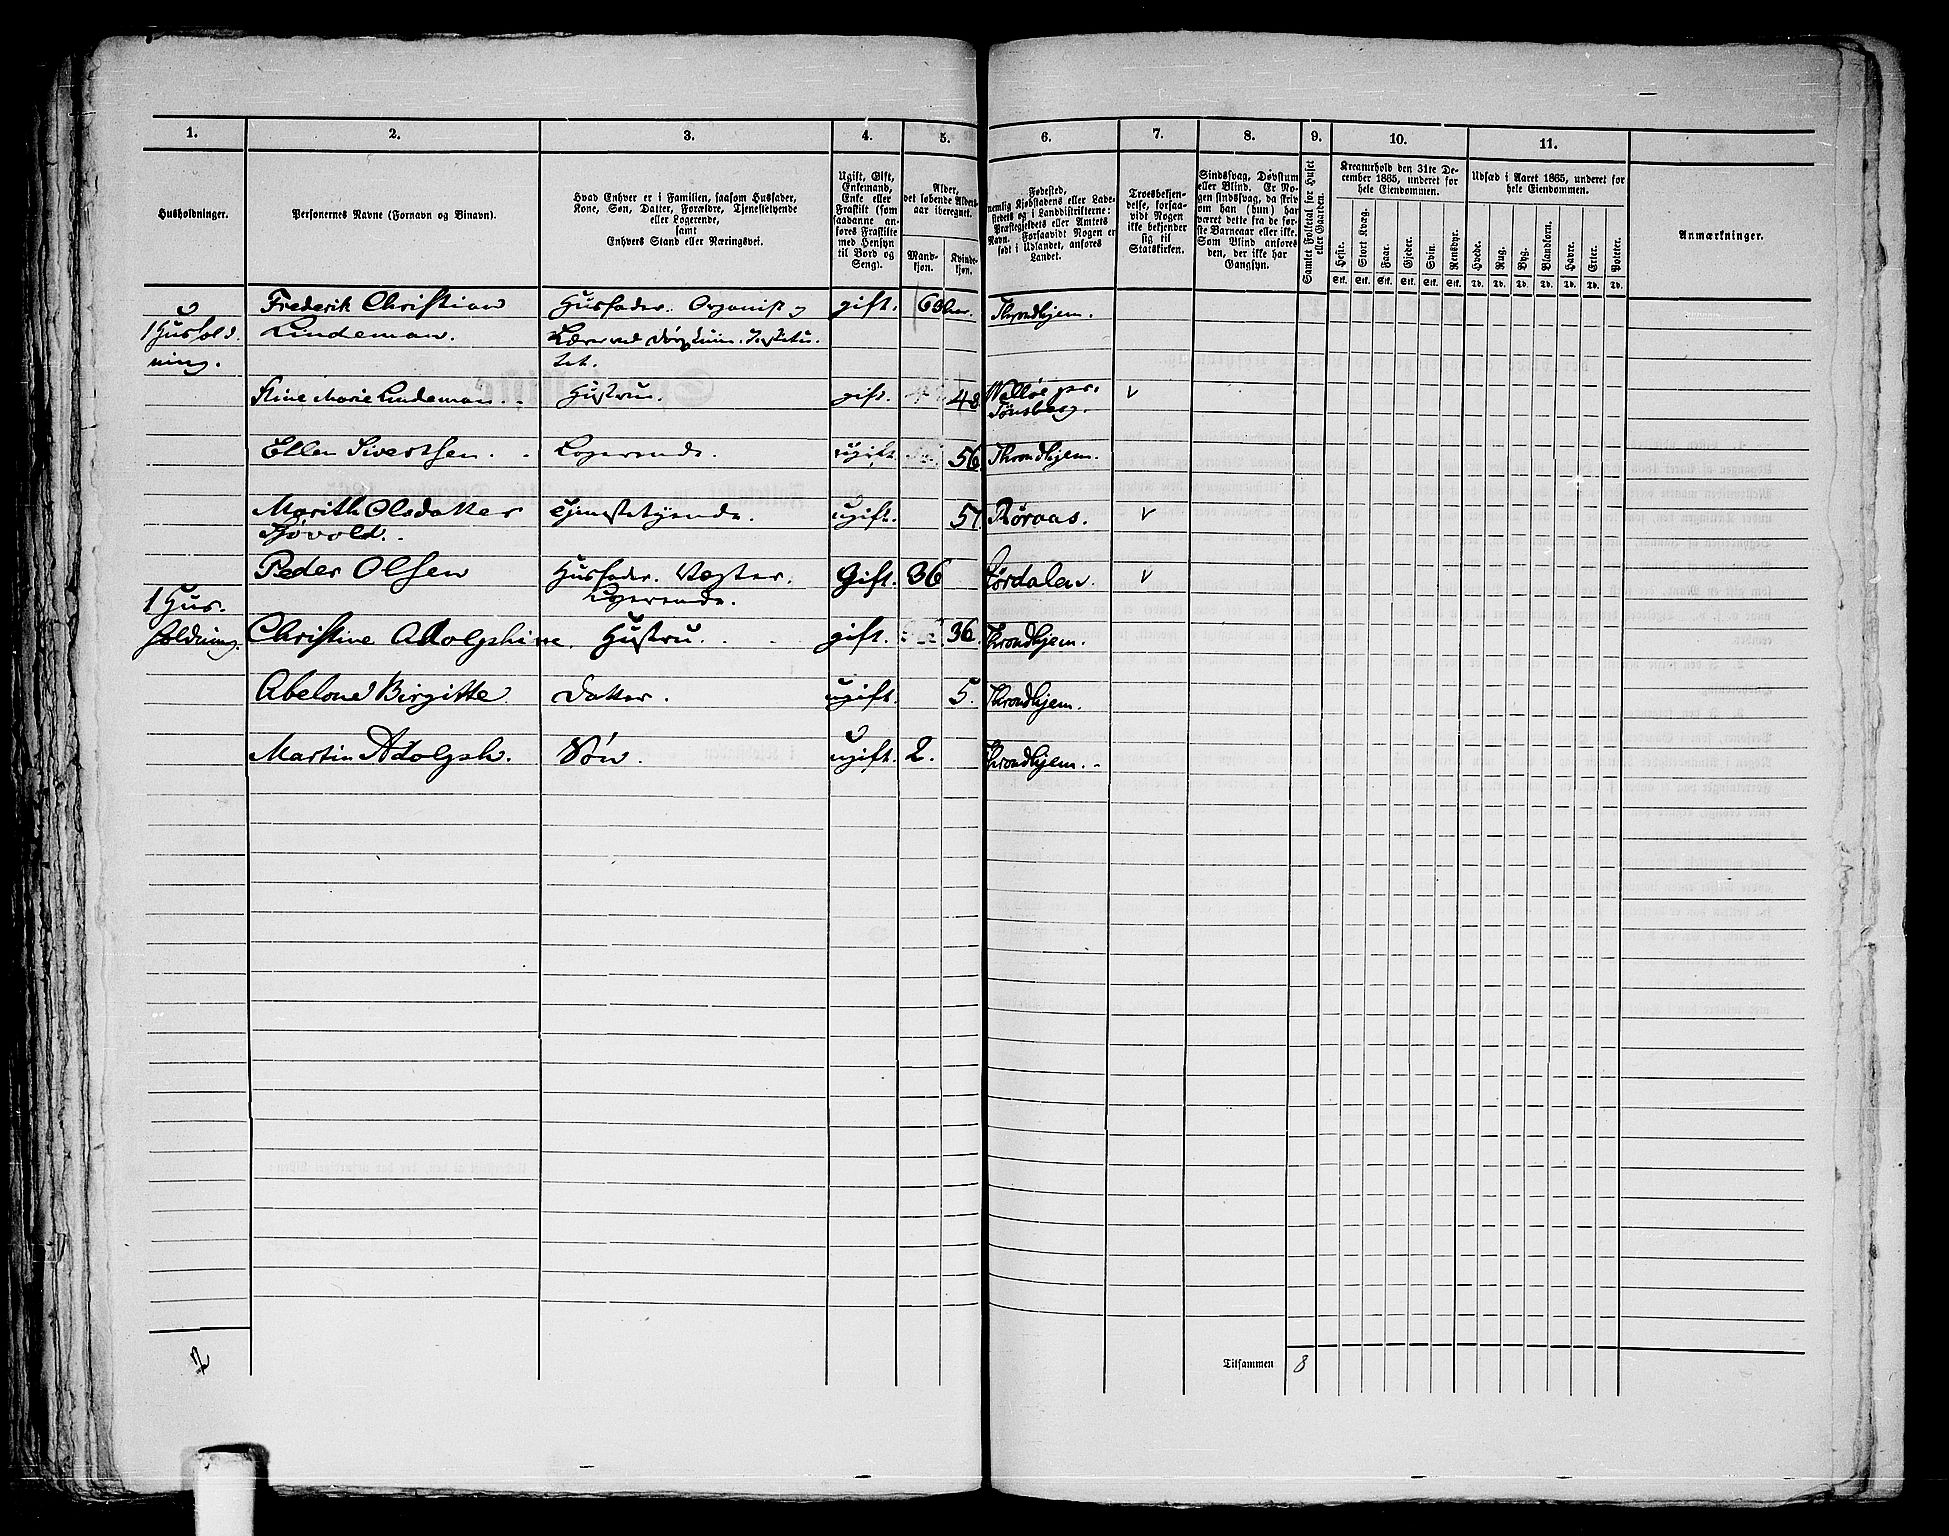 1. 2. 3. 4. 5. 6. 7. 8. 9. 10. 11.
Husholdninger.
Personernes Navne (Fornavn og Binavn).
Hvad Enhver er i Familien, saasom Husfader,
Kone, Søn, Datter, Forældre, Tjenestetyende
eller Logerende,
samt
Enhvers Stand eller Næringsvei.
Ugift, Gift,
Enkemand,
Enke eller
Fraskilt (som
saadanne an-
føres Fraskilte
med Hensyn
til Bord og
Seng).
Alder,
det løbende Alders-
aar iberegnet.
Mand-
kjøn.
Kvinde-
kjøn.
Fødested,
nemlig Kjøbstadens eller Lade-
stedets og i Landdistrikterne:
Præstegjeldets eller Amtets
Navn. Forsaavidt Nogen er
født i Udlandet, anføres
Landet.
Troesbekjen-
delse, forsaa-
vidt Nogen
ikke bekjender
sig til
Statskirken.
Sindssvag, Døvstum
eller Blind. Er No-
gen sindssvag, da skriv
om han (hun) har
været dette fra de før-
ste Barneaar eller ikke.
Som Blind anføres
den, der ikke har
Gangsyn.
Samlet Folketal for Huset
eller Gaarden.
Kreaturhold den 31te De-
cember 1865, underet for
hele Eiendommen.
Heste. Stort Kvæg. Faar. Gjeder. Svin. Rensdyr.
Stk. Stk. Stk. Stk. Stk. Stk.
Udsæd i Aaret 1865, underet for
hele Eiendommen.
Hvede. Rug. Byg. Blandkorn. Havre. Erter. Poteter.
Td. Td. Td. Td. Td. Td. Td.
Anmærkninger.
Frederik Christian Husfader. Organist og gift. Throndhjem.
1 Hushold Lindeman. Lærer ved Døvstum. Institu-
ning. tet.
Stine Marie Lindeman. Hustru. gift. 48 Valløe pr.
Tønsberg.
Ellen Sivertsen. Logerende. ugift 56 Throndhjem.
Marith Olsdatter Tjenestetyende. ugift. 51 Røraas.
Peder Olsen Husfader. Vægter. Gift. 36 Størdalen.
1 Hus- Logerende.
holdning. Christine Adolphine. Hustru. gift. 36. Throndhjem.
Abelone Birgitte Datter. ugift. 5. Throndhjem.
Martin Adolph. Søn. ugift. 2. Throndhjem.
2
Tilsammen 8